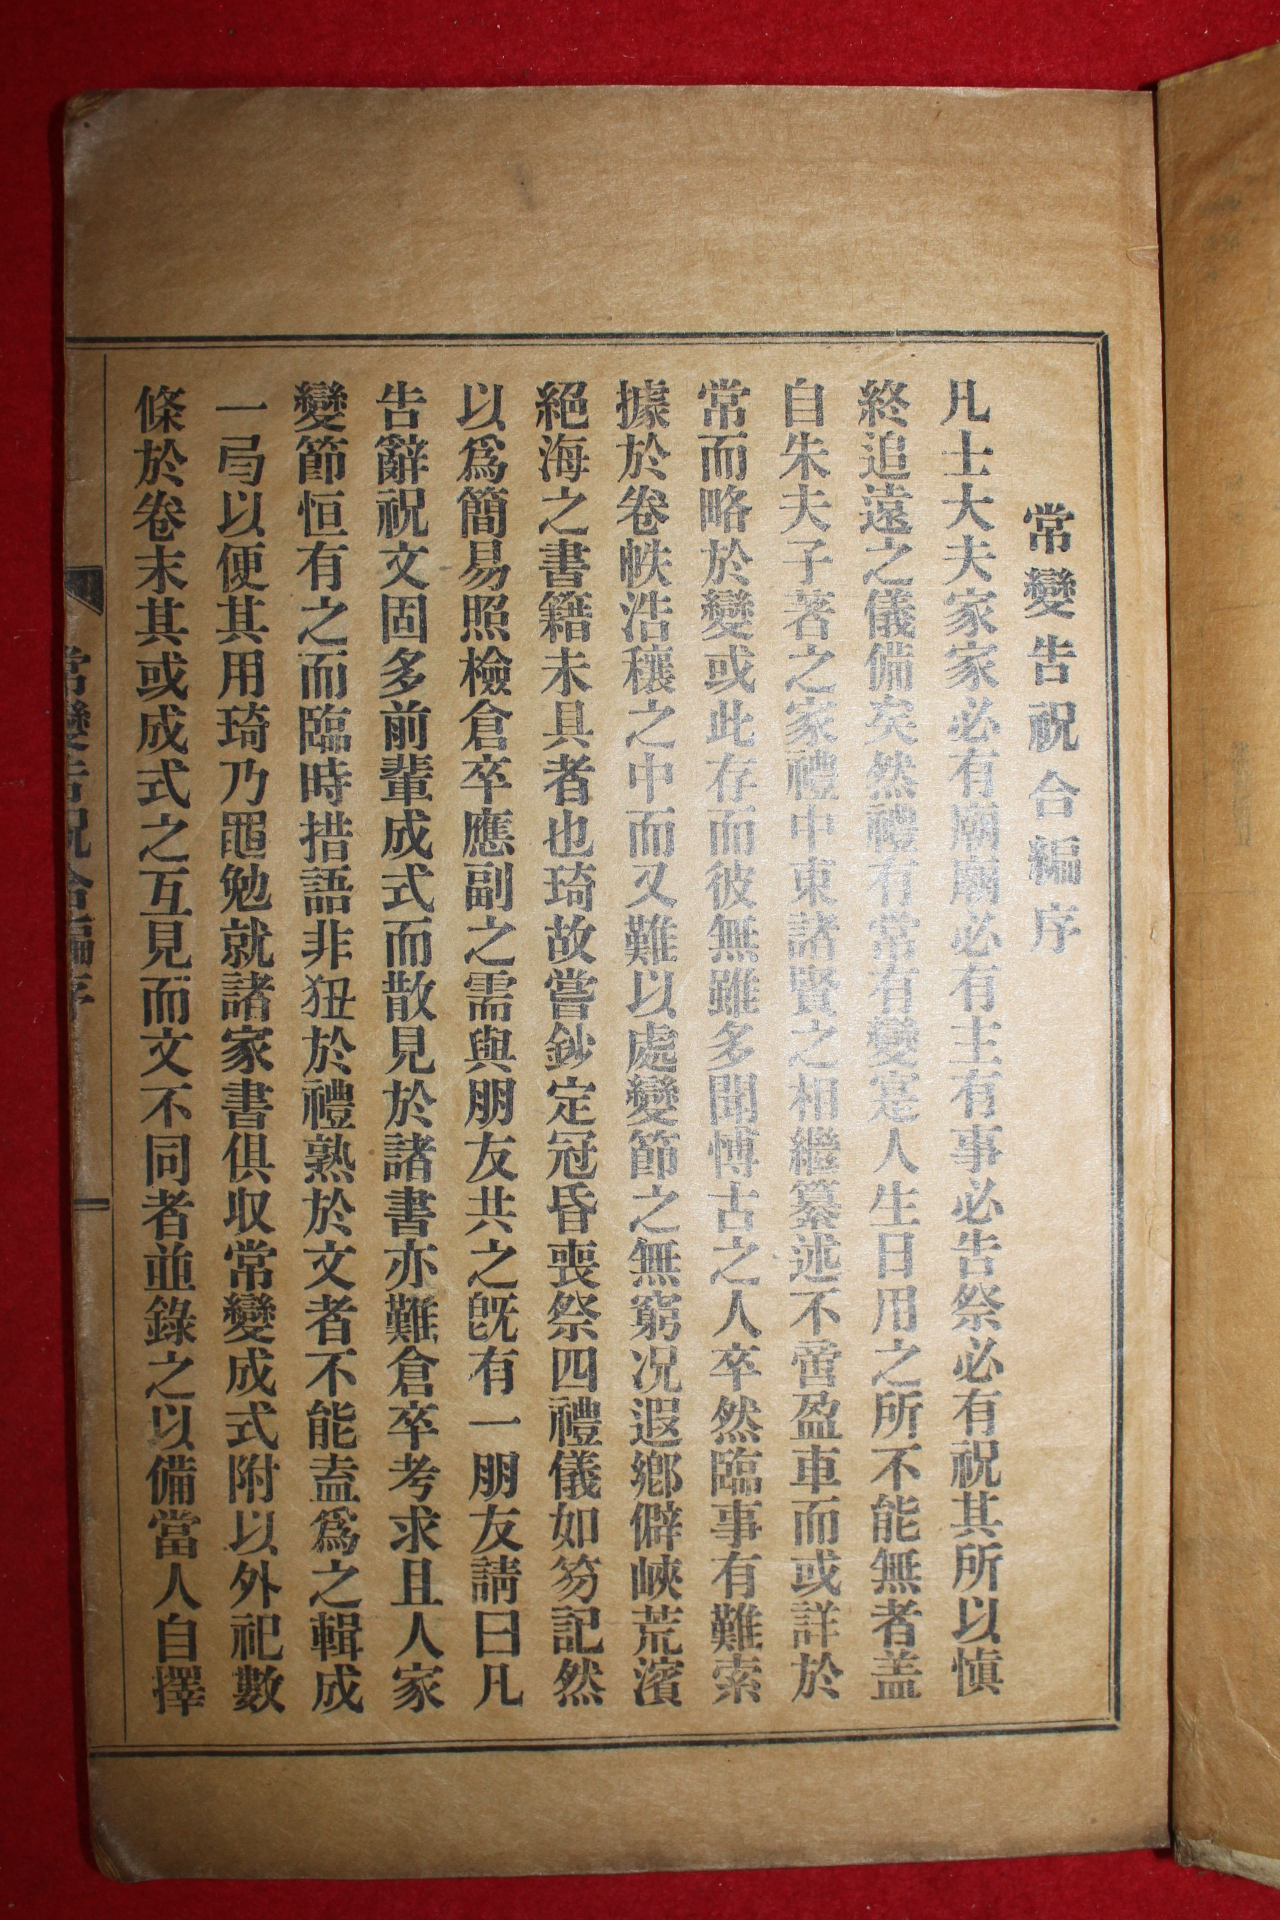 常變告祝合編序
凡士大夫家家必有廟廟必有主有事必告祭必有祝其所以愼
終追遠之儀備矣然禮有常有變寔人生日用之所不能無者盖
自朱夫子著之家禮中東諸賢之相繼纂述不啻盈車而或詳於
常而略於變或此存而彼無雖多聞博古之人卒然臨事有難索
據於卷帙浩穰之中而又難以處變節之無窮况遐鄕僻峽荒濱
絕海之書籍未具者也琦故嘗鈔定冠昏喪祭四禮儀如笏記然
以爲簡易照檢倉卒應副之需與朋友共之旣有一朋友請曰凡
告辭祝文固多前輩成式而散見於諸書亦難倉卒考求且人家
變節恒有之而臨時措語非狃於禮熟於文者不能盍爲之輯成
一局以便其用琦乃黽勉就諸家書俱収常變成式附以外祀數
條於卷末其或成式之互見而文不同者並錄之以備當人自擇
常變告祝合編序 一